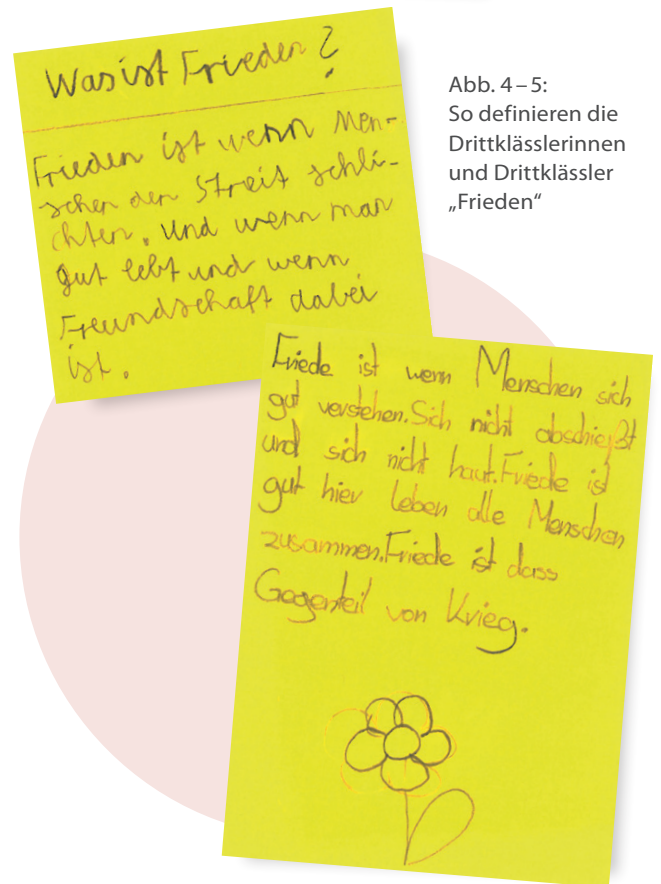 Was ist Frieden?
Frieden ist wenn Men-
schen den Streit schli-
chten. Und wenn man
gut lebt und wenn
Freundschaft dabei
ist.
Abb. 4–5:
So definieren die
Drittklässlerinnen
und Drittklässler
„Frieden“
Friede ist wenn Menschen sich
gut verstehen. Sich nicht abschießt
und sich nicht haut. Friede ist
gut hier leben alle Menschen
zusammen. Friede ist dass
Gegenteil von Krieg.